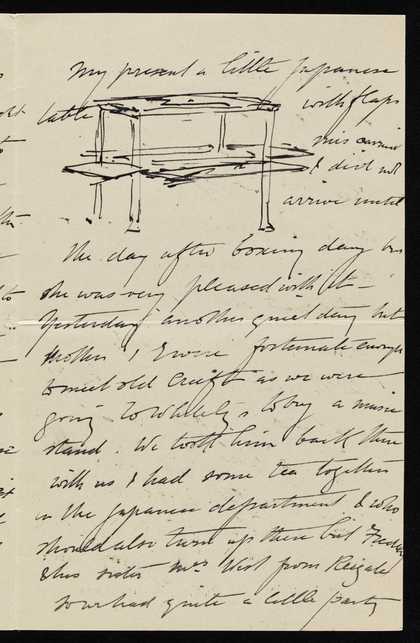 My present a little Japanese
table with flaps
& did not
arrive until
the day after boxing day but
she was very pleased with it –
Yesterday another quiet day but
Mother & I were fortunate enough
to meet old Cruft as we were
going to Whiteley's to buy a music
stand. We took him back there
with us & had some tea together
in the Japanese department & who
should also turn up there but
& his sister Mrs West from Reigate
so we had quite a little party